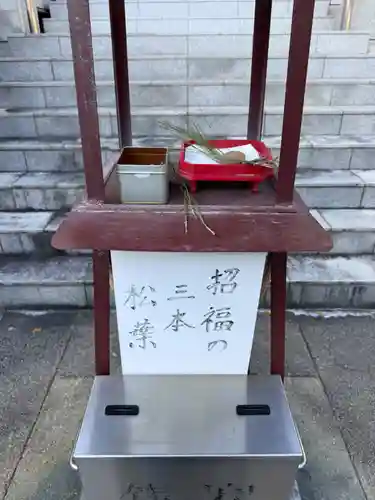 招福の
三本
松葉